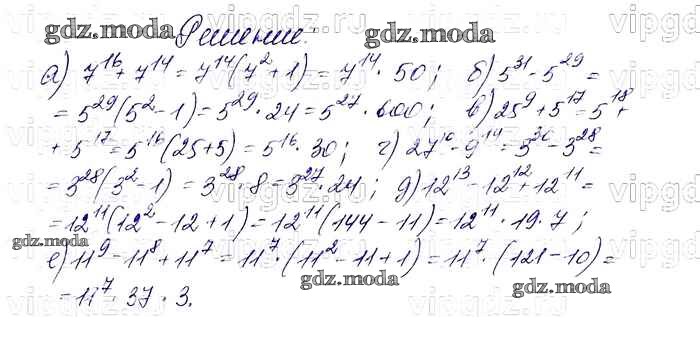 gdz.moda Решение: gdz.moda
а) 7^16 + 7^14 = 7^14(7^2 + 1) = 7^14 · 50; б) 5^31 - 5^29 =
= 5^29(5^2 - 1) = 5^29 · 24 = 5^27 · 600; в) 25^9 + 5^17 = 5^18 +
+ 5^17 = 5^16(25 + 5) = 5^16 · 30; г) 27^10 - 9^14 = 3^30 - 3^28 =
= 3^28(3^2 - 1) = 3^28 · 8 = 3^27 · 24; д) 12^13 - 12^12 + 12^11 =
= 12^11(12^2 - 12 + 1) = 12^11(144 - 11) = 12^11 · 19 · 7;
gdz.moda
е) 11^9 - 11^8 + 11^7 = 11^7 · (11^2 - 11 + 1) = 11^7 · (121 - 10) =
gdz.moda gdz.moda
= 11^7 · 37 · 3.